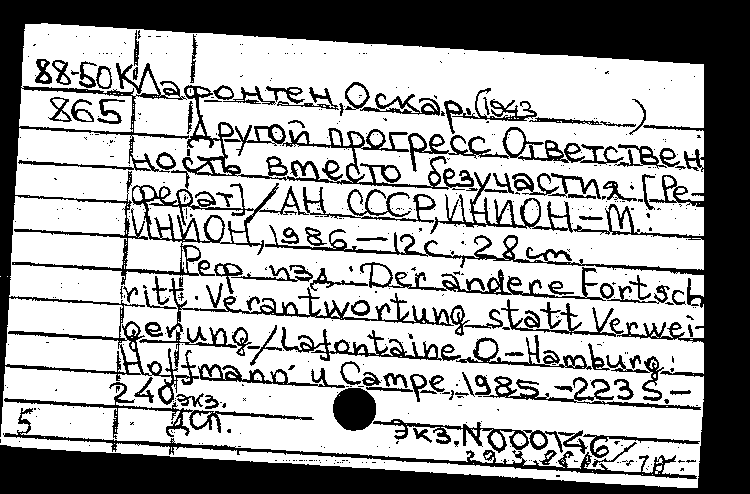 88-50К Лафонтен, Оскар. (1943 )
865 Другой прогресс Ответствен
ность вместо безучастия. [Ре-
ферат] / АН СССР, ИНИОН. – М.:
ИНИОН, 1986. – 12с.; 28cm.
Реф. изд.: Der andere Fortsch
ritt. Verantwortung statt Verwei-
gerung / Lafontaine O. – Hamburg:
Hoffmann u Campe, 1985. – 223 S. –
240 экз.
5 ДСП. Экз. N000146
29.3.88